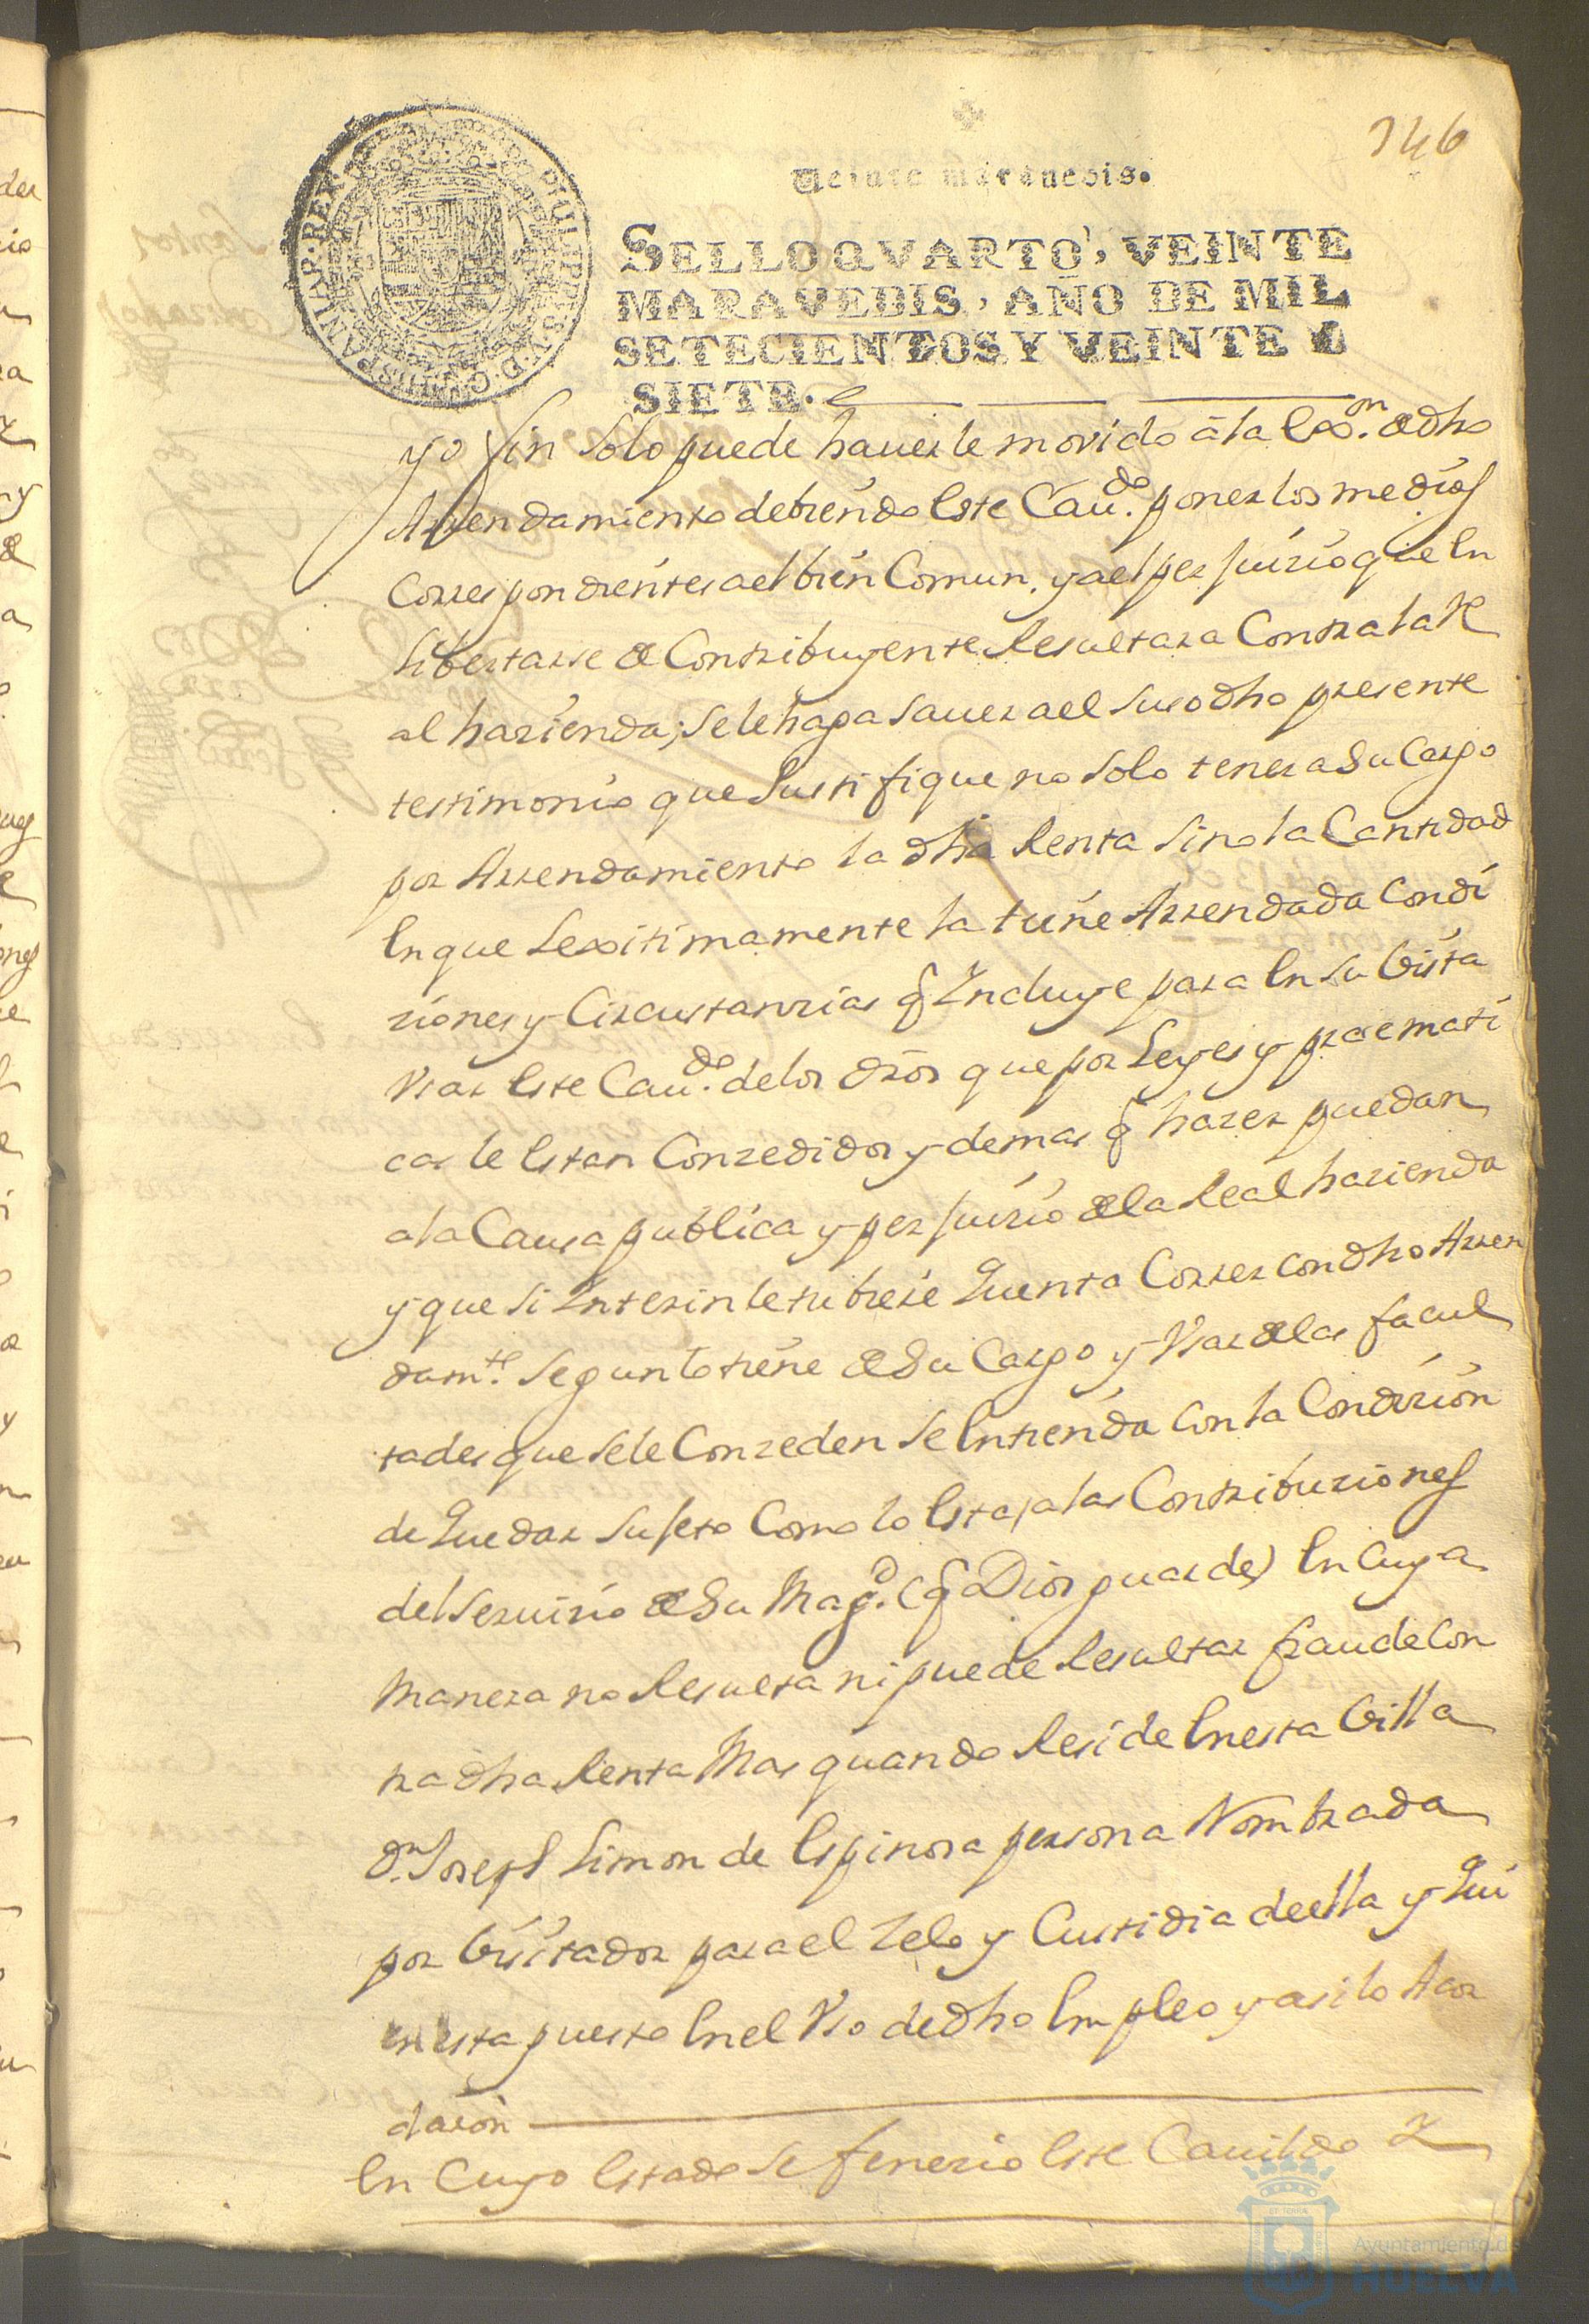 146
Veinte marauedis.
SELLO QVARTO, VEINTE
MARAVEDIS, AÑO DE MIL
SETECIENTOS Y VEINTE Y
SIETE.
PHILIPPUS V. D. G. HISPANIAR. REX
yo fin solo puede hauerle movido â la exon. de dho
Arrendamiento debiendo este Caudo. poner los medios
Correspondientes a el bien Comun. y a el perjuizio que en
libertarse de Contribuyente Resultara Contra la Re
al hazienda; se le haga sauer a el susodho presente
testimonio que Justifique no solo tener a Su Cargo
por Arrendamiento la dha Renta Sino la Cantidad
en que Lexitimamente la tiene Arrendada Condi
ziones y Circustanzias q Incluye para en su Vista
Vsar este Caudo. de los dros que por Leyes y pracmati
cas le estan Conzedidos y demas q hazer puedan
a la Causa publica y perjuizio de la Real hazienda
y que si Interin le tubiere Quenta Correr con dho Arren
damte. segun lo tiene de Su Cargo y Vsar de las facul
tades que se le Conzeden se entienda con la Condizion
de Quedar sujeto Como lo esta, a las Contribuziones
del Seruizio de Su Magd. (q Dios guarde) en Cuya
manera no Resulta ni puede Resultar fraude Con
tra dha Renta Mas quando Reside en esta Villa
Dn. Joseph Simon de Espinosa persona Nombrada
por Visitador para el Zelo y Custidia de ella y Qui
en esta puesto en el Vso de dho Empleo y asi lo Acor
daron
en Cuyo estado se fenezio este Cauildo
Ayuntamiento de
HUELVA